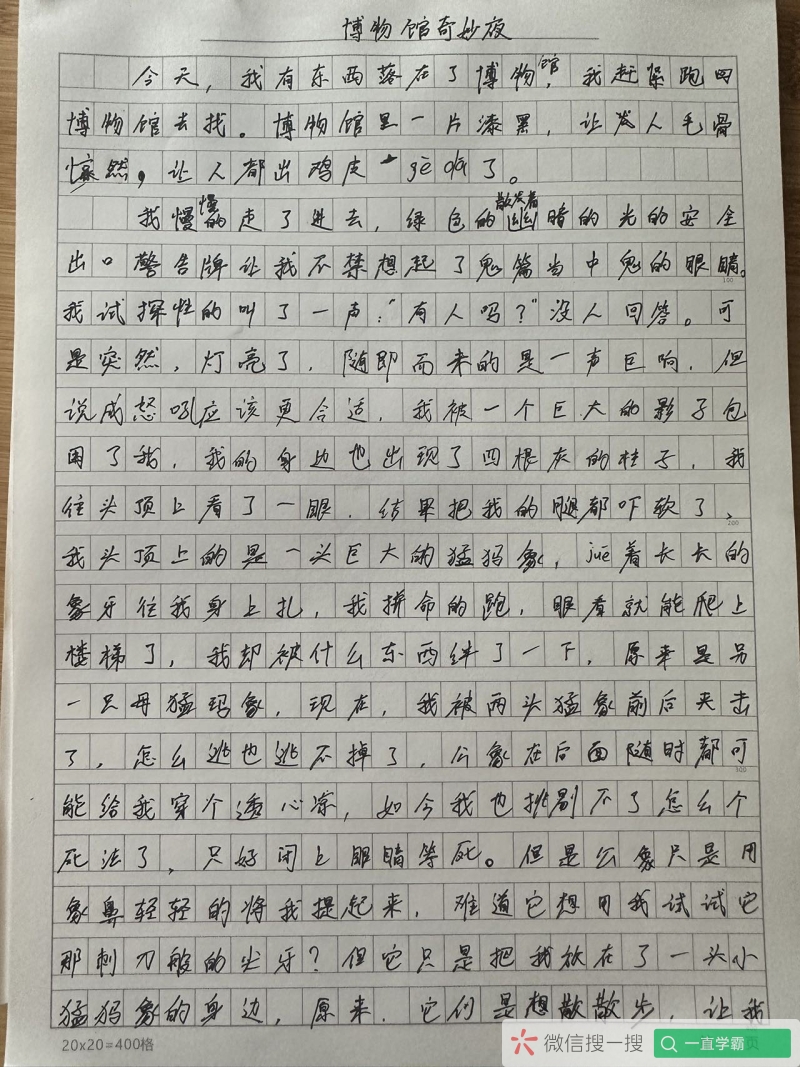 博物馆奇妙夜
今天，我有东西落在了博物馆，我赶紧跑回
博物馆去找。博物馆里一片漆黑，让发人毛骨
悚然，让人都出鸡皮 gē da了。
我慢慢的走了进去，绿色的散发着幽暗的光的安全
出口警告牌让我不禁想起了鬼篇当中鬼的眼睛。
100
我试探性的叫了一声：“有人吗？”没人回答。可
是突然，灯亮了，随即而来的是一声巨响，但
说成怒吼应该更合适，我被一个巨大的影子包
围了我，我的身边也出现了四根灰的柱子，我
往头顶上看了一眼，结果把我的腿都吓软了、
200
我头顶上的是一头巨大的猛犸象，jué着长长的
象牙往我身上扎，我拼命的跑，眼看就能爬上
楼梯了，我却被什么东西绊了一下，原来是另
一只母猛玛象，现在，我被两头猛象前后夹击
了，怎么逃也逃不掉了，公象在后面随时都可
300
能给我穿个透心凉，如今我也挑剔不了怎么个
死法了，只好闭上眼睛等死。但是公象只是用
象鼻轻轻的将我提起来，难道它想用我试试它
那刺刀般的尖牙？但它只是把我放在了一头小
猛犸象的身边，原来，它们是想散散步，让我
20x20=400格
微信搜一搜
一直学霸
页